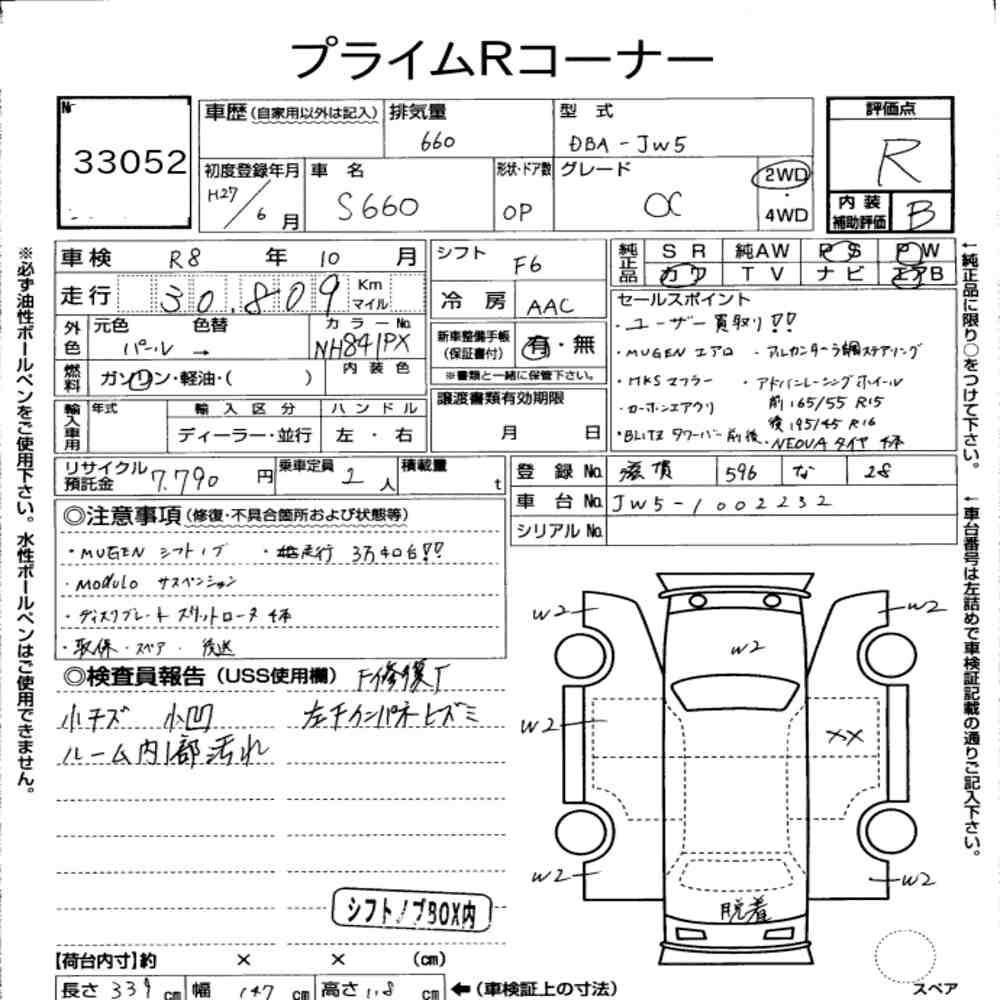 プライムRコーナー
№ 33052
車歴(自家用以外は記入)
排気量 660
型式 DBA-JW5
評価点 R
初度登録年月 H27/6月
車名 S660
形状・ドア数 OP
グレード OC
2WD・4WD
内装補助評価 B
車検 R8年10月
走行 30.809 Km マイル
シフト F6
冷房 AAC
純正品 SR 純AW PS PW
カワ TV ナビ エアB
外色 元色 パール → 色替
カラーNo. NH841PX
燃料 ガソリン・軽油・( )
内装色
新車整備手帳(保証書付) 有・無
※書類と一緒に保管下さい。
輸入車用 年式
輸入区分 ディーラー・並行
ハンドル 左・右
譲渡書類有効期限
月 日
セールスポイント
・ユーザー買取り!!
・MUGEN エアロ ・アルカンターラ調ステアリング
・HKSマフラー ・アドバンレーシングホイール
・カーボンエアクリ 前165/55 R15
後195/45 R16
・BLITZ タワーバー前後 ・NEOVAタイヤ 4本
リサイクル預託金 7.790円
乗車定員 2人
積載量 t
登録No. 滋賀 596 な 28
車台No. JW5-1002232
シリアルNo.
◎注意事項(修復・不具合箇所および状態等)
・MUGEN シフトノブ ・走行 3万キロ台!!
・Modulo サスペンション
・ディスクブレーキ スリットローター 4本
・取保・スペア・後送
◎検査員報告(USS使用欄) F修復了
小キズ 小凹 左フインパネヒズミ
ルーム内1部汚れ
シフトノブBOX内
W2
W2
W2
W2
XX
W2
W2
W2
脱着
スペア
【荷台内寸】約 × × (cm)
長さ 339cm 幅 147cm 高さ 118cm
←(車検証上の寸法)
※必ず油性ボールペンをご使用下さい。水性ボールペンはご使用できません。
←純正品に限り○をつけて下さい。
←車台番号は左詰めで車検証記載の通りご記入下さい。